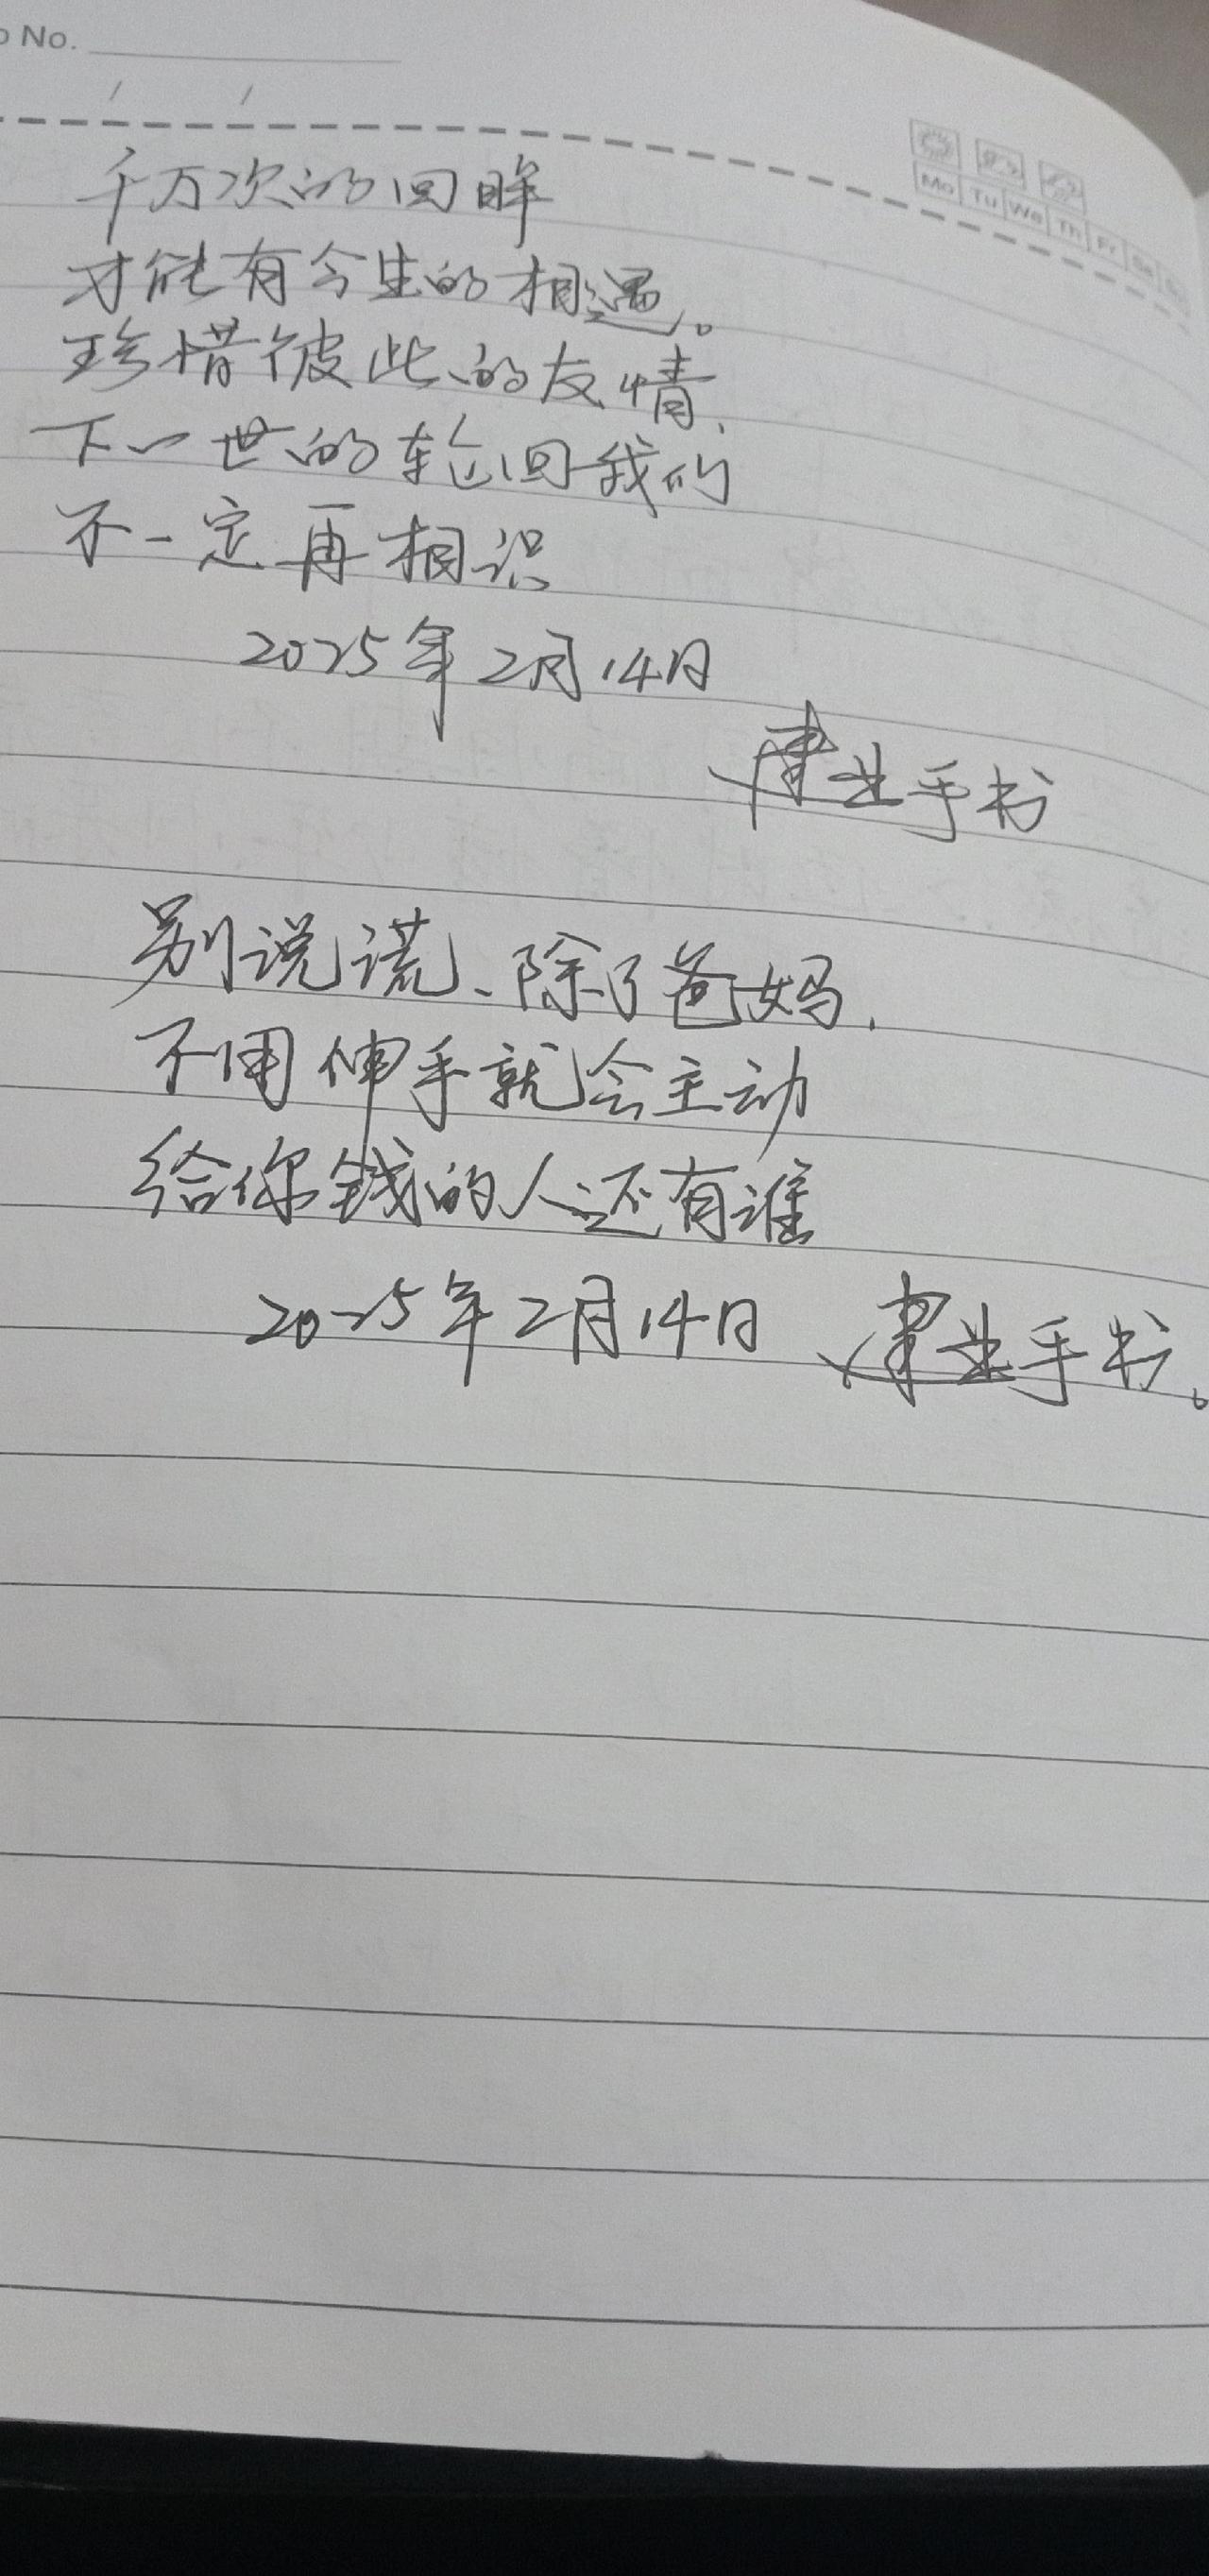 No.
Mo Tu We Th Fr Sa Su
千万次的回眸
才能有今生的相遇。
珍惜彼此的友情,
下一世的轮回我们
不一定再相识
2025年2月14日
建业手书
别说谎、除了爸妈,
不用伸手就会主动
给你钱的人还有谁
2025年2月14日 建业手书。